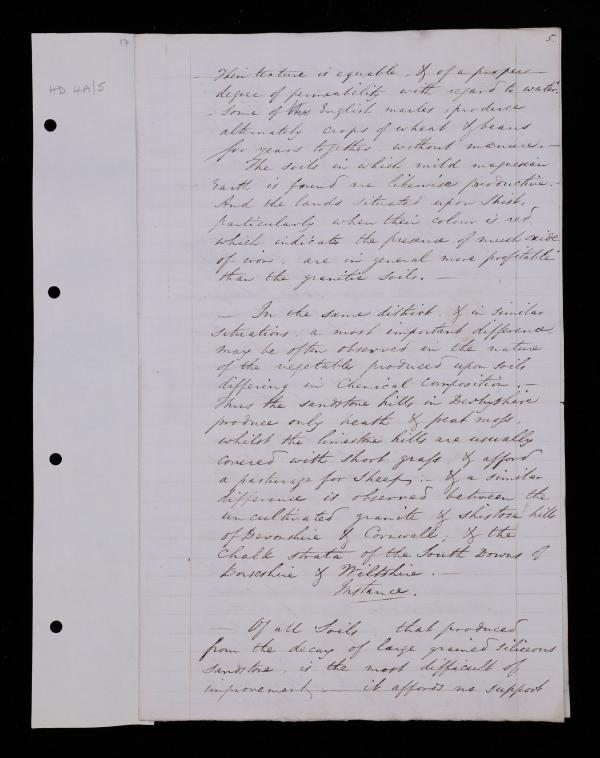 5.
17
HD 4A/5
Their texture is equable, & of a proper
degree of permeability with regard to water.
- Some of the English marles produce
alternately crops of wheat & beans
for years together without manure. -
The soils in which mild magnesian
Earth is found are likewise productive. -
And the lands situated upon Shist,
particularly when their colour is red
which indicates the presence of much oxide
of iron, are in general more profitable
than the granitic soils. -
- In the same district, & in similar
situations, a most important difference
may be often observed in the nature
of the vegetables produced upon soils
differing in Chemical composition. -
Thus the sandstone hills in Derbyshire
produce only heath & peat moss,
whilst the limestone hills are usually
covered with short grass, & afford
a pasturage for Sheep, - & a similar
difference is observed between the
uncultivated granite & Shistose hills
of Devonshire & Cornwall, & the
Chalk strata of the South Downs of
Dorsetshire & Wiltshire. -
Instance.
- Of all Soils that produced
from the decay of large grained siliceous
Sandstone, is the most difficult of
improvement, - it affords no support